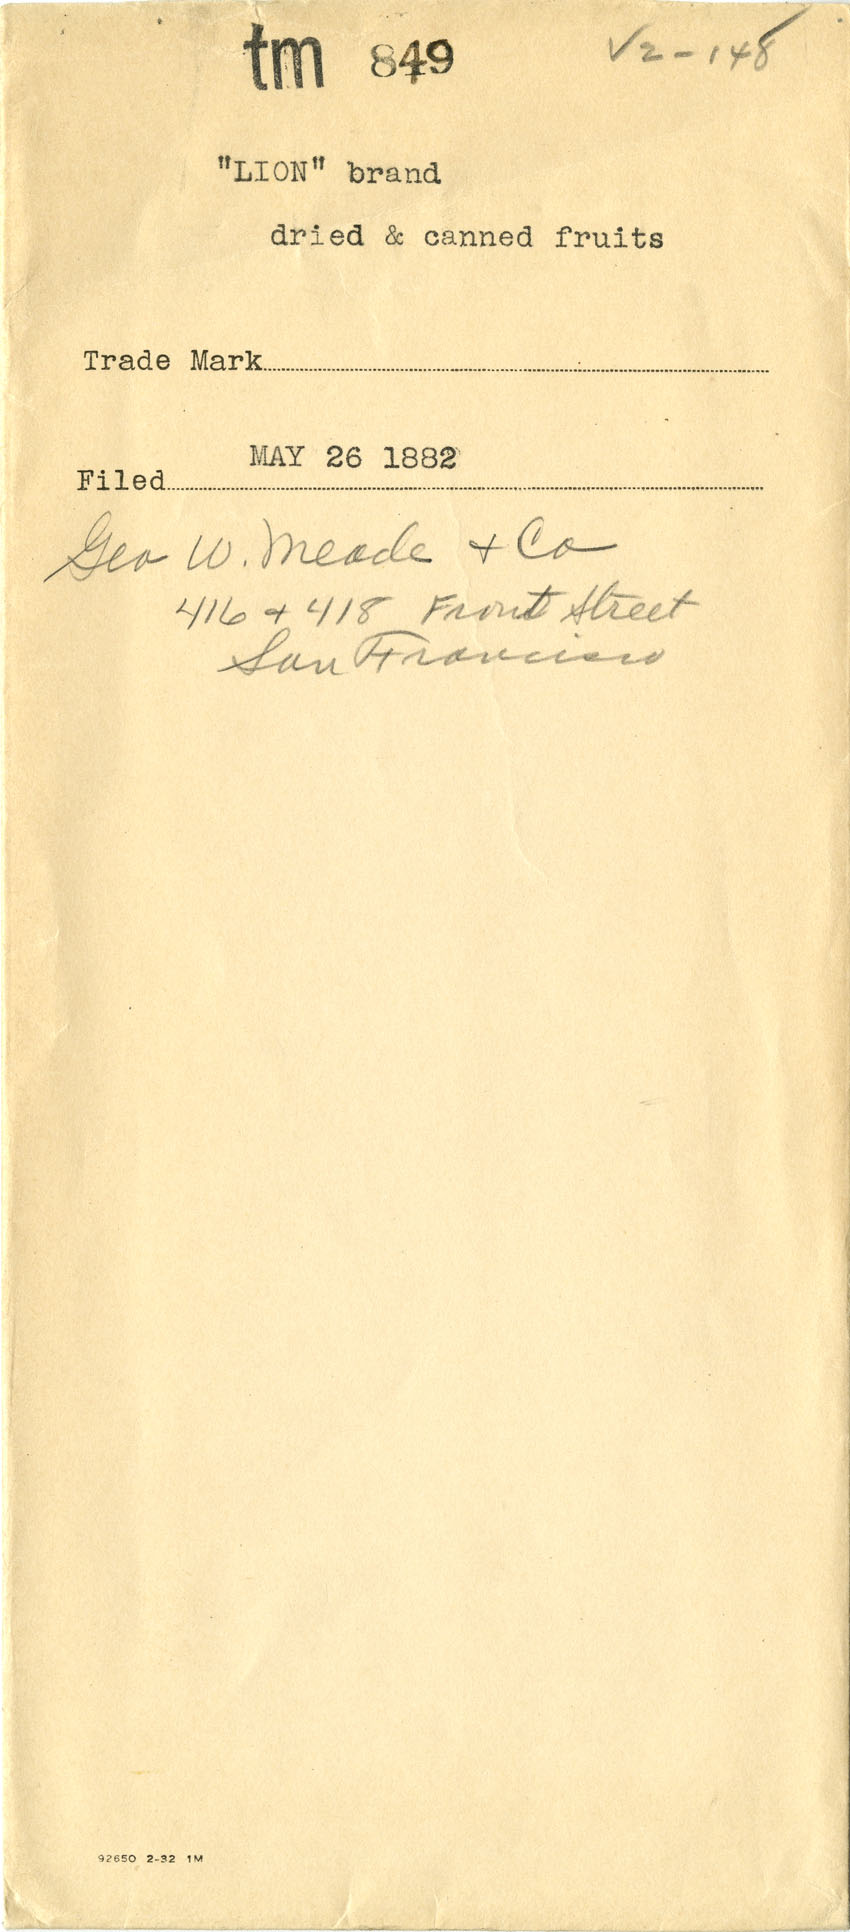 tm 849 √2-148
"LION" brand
dried & canned fruits
Trade Mark
MAY 26 1882
Filed
Geo W. Meade + Co
416 + 418 Front Street
San Francisco
92650 2-32 1M